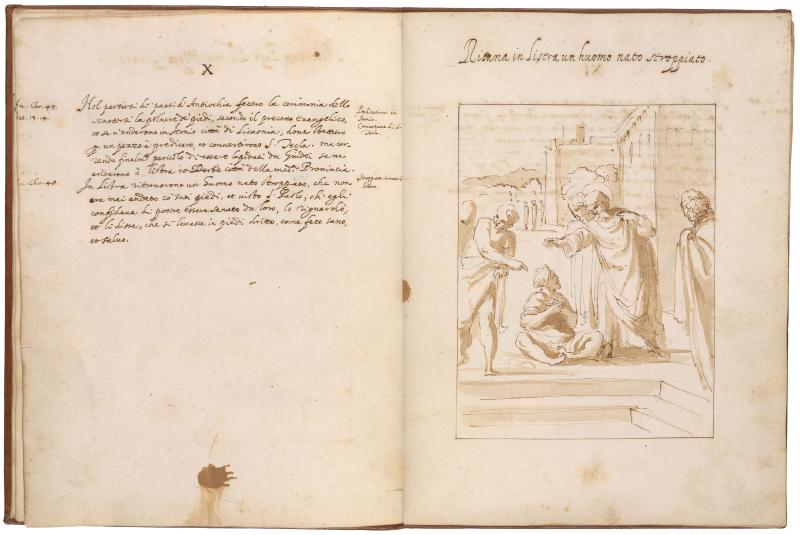 X
An. Chr. 47.
Act. 13. 14
Nel partirsi di paesi d'Antiochia fecero la cerimonia dello
scuotersi la polvere de' piedi, secondo il precetto Evangelico,
et se n'andarono in Iconio città di Licaonia, dove stettero
un pezzo à predicare, et convertirono S. Tecla. ma cor-
rendo finalmte pericolo di essere lapidati da Giudei se ne
andarono à Listra et Derbe città della medma Provincia.
Predicatione in
Iconio.
Conversione di S.
Tecla.
An. Chr. 48.
In Listra ritrovarono un huomo nato stroppiato, che non
era mai andato co' suoi piedi, et visto S. Paolo, ch'egli
confidava di potere essere sanato da loro, lo riguardò,
et li disse, che si levasse in piedi dritto, come fece sano,
et salvo.
Stroppiato sanato in
Listra.
Risana in Listra un huomo nato stroppiato.